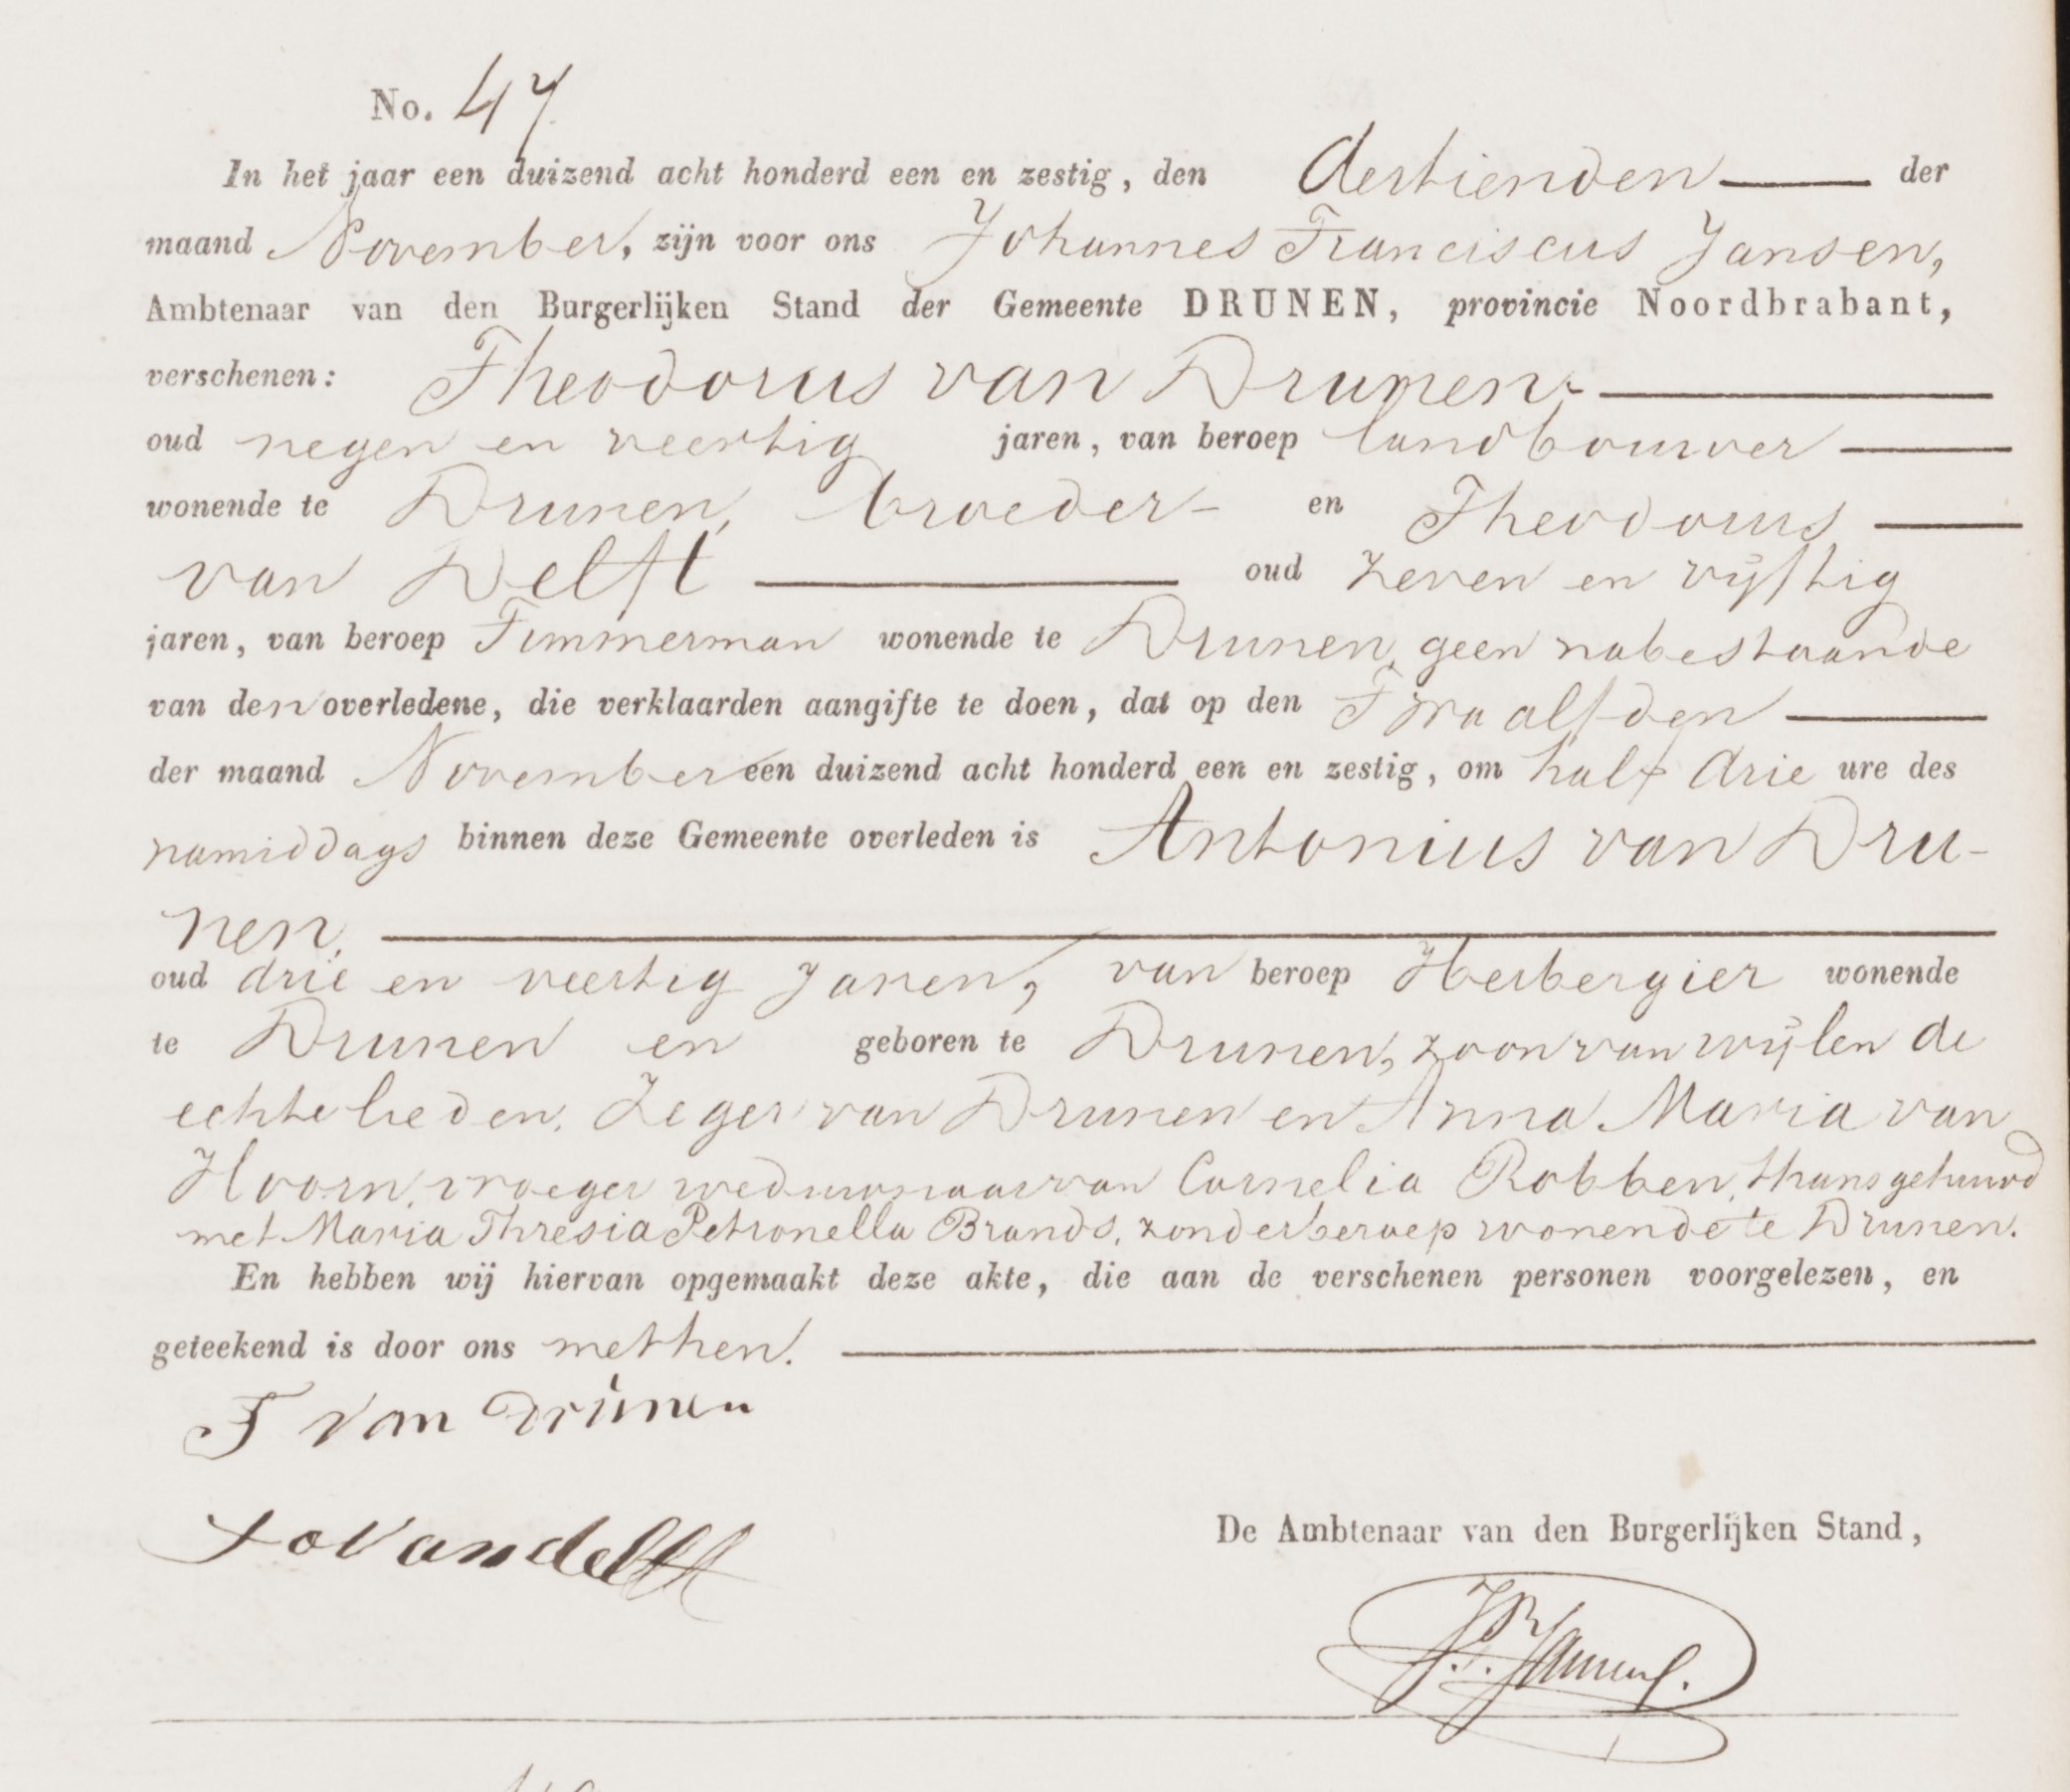 No. 47
In het jaar een duizend acht honderd een en zestig, den dertienden der
maand November, zijn voor ons Johannes Franciscus Jansen,
Ambtenaar van den Burgerlijken Stand der Gemeente DRUNEN, provincie Noordbrabant,
verschenen: Theodorus van Drunen
oud negen en veertig jaren, van beroep landbouwer
wonende te Drunen, broeder en Theodorus
van Delft oud zeven en vijftig
jaren, van beroep Timmerman wonende te Drunen, geen nabestaande
van den overledene, die verklaarden aangifte te doen, dat op den Twaalfden
der maand November een duizend acht honderd een en zestig, om half drie ure des
namiddags binnen deze Gemeente overleden is Antonius van Dru-
nen.
oud drie en veertig jaren, van beroep Herbergier wonende
te Drunen en geboren te Drunen, zoon van wijlen de
echtelieden, Zeger van Drunen en Anna Maria van
Hoorn, vroeger weduwnaar van Cornelia Robben, thans gehuwd
met Maria Thresia Petronella Brands, zonder beroep wonende te Drunen.
En hebben wij hiervan opgemaakt deze akte, die aan de verschenen personen voorgelezen, en
geteekend is door ons met hen.
T van Drunen
van delft
De Ambtenaar van den Burgerlijken Stand,
J.F. Jansen.